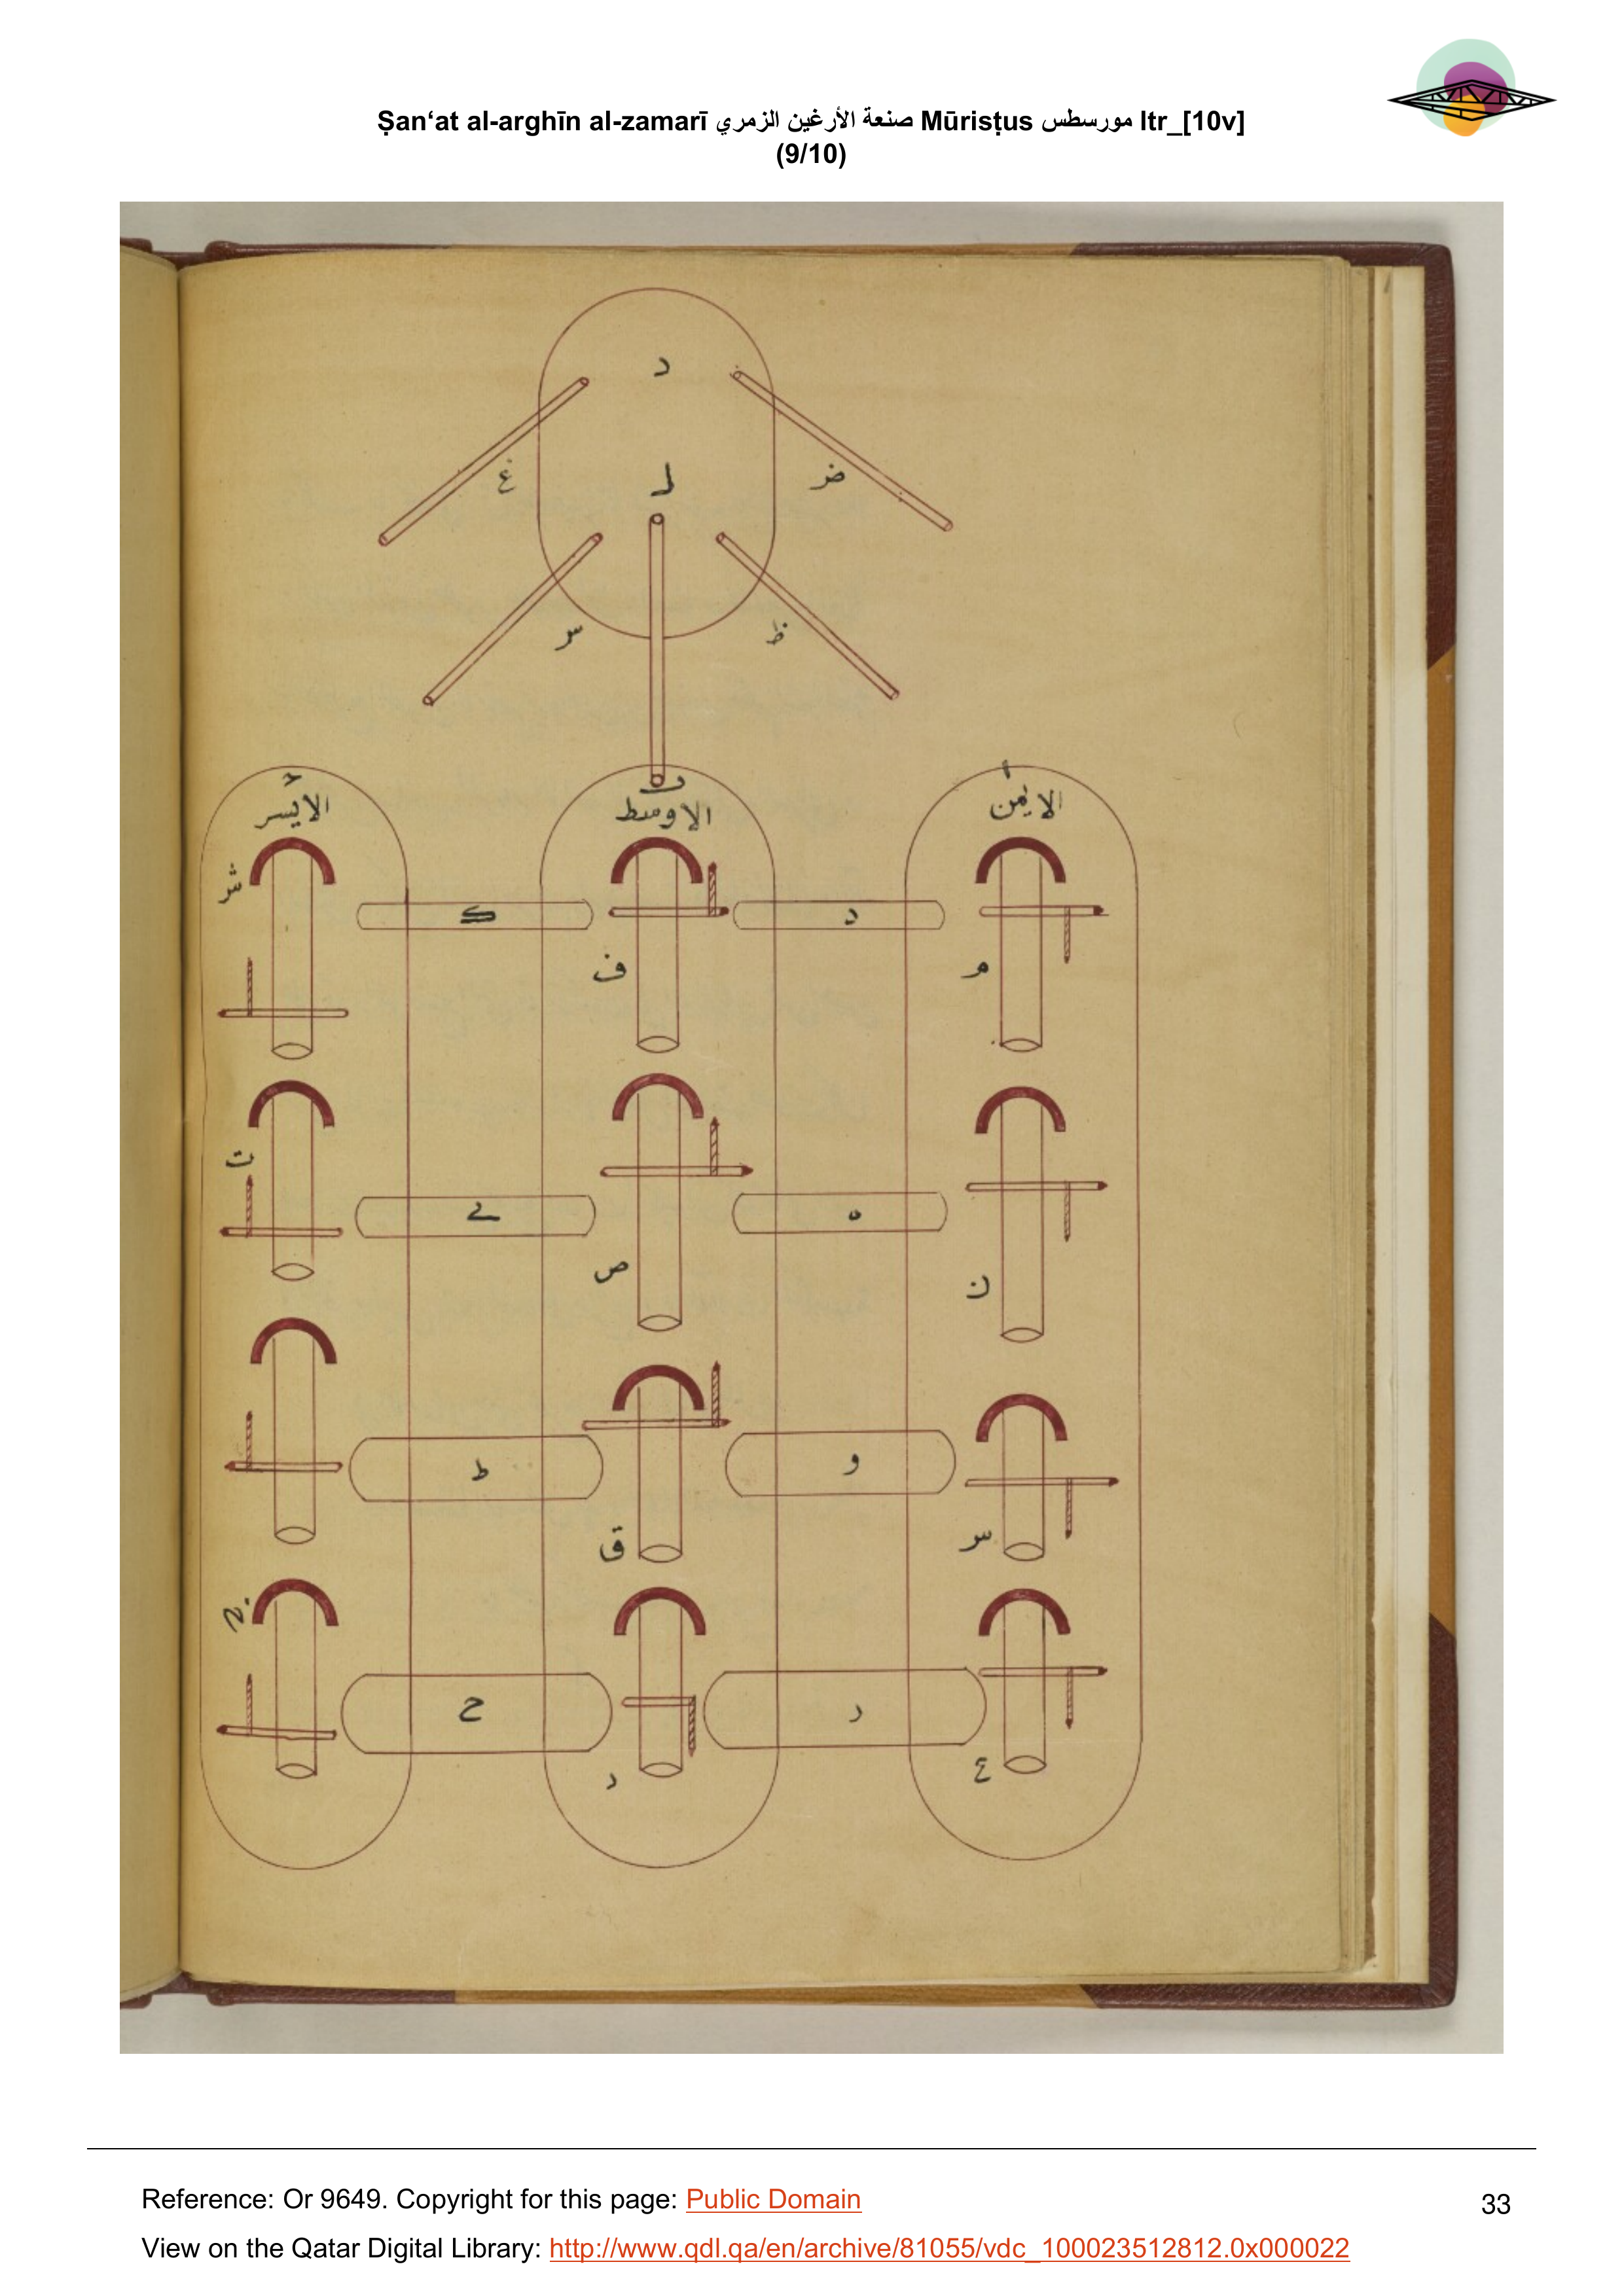 Ṣan‘at al-arghīn al-zamarī صنعة الأرغين الزمري Mūrisṭus مورسطس ltr_[10v]
(9/10)
د
غ
ل
ض
ظ
الايمن
الاوسط
الايسر
ش
ك
ف
د
م
ت
ي
ص
ه
ن
ط
ق
و
س
ح
ع
Reference: Or 9649. Copyright for this page: Public Domain
33
View on the Qatar Digital Library: http://www.qdl.qa/en/archive/81055/vdc_100023512812.0x000022